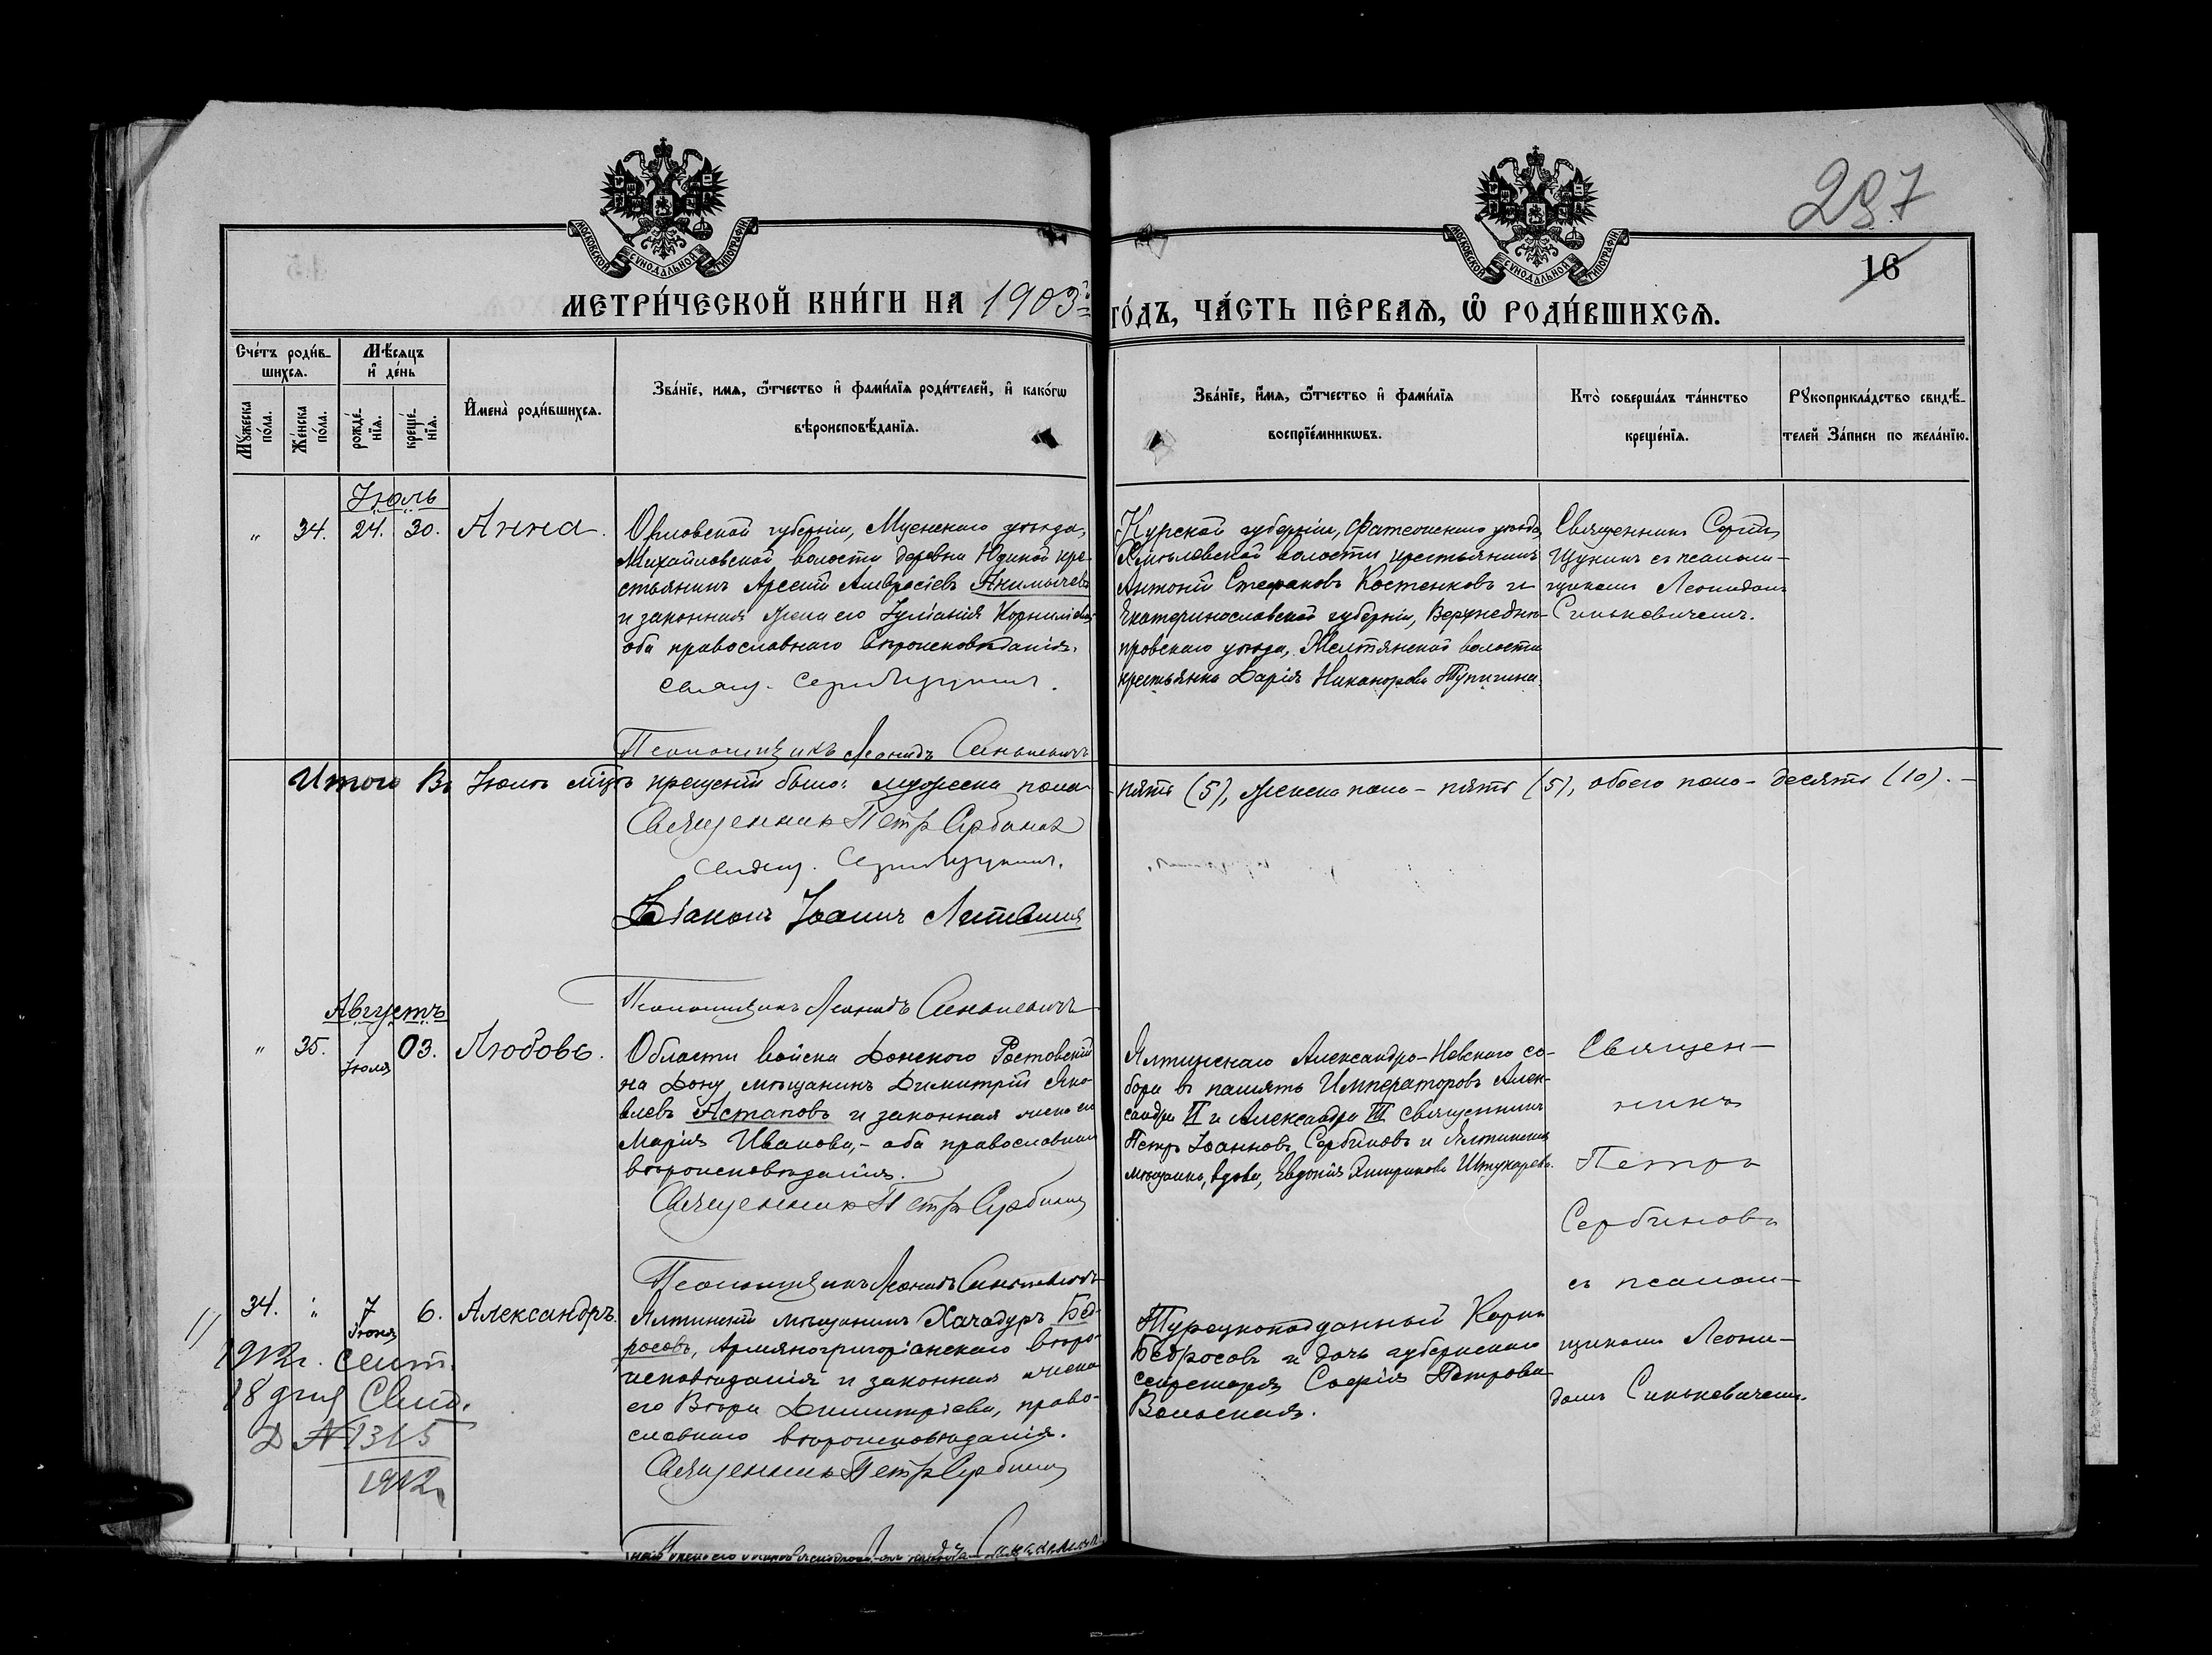 МОСКОВСКОЙ СУНОДАЛЬНОЙ ТИПОГРАФІИ
МОСКОВСКОЙ СУНОДАЛЬНОЙ ТИПОГРАФІИ
287
16
МЕТРИ́ЧЕСКОЙ КНИ́ГИ НА 1903й
ГО́ДЪ, ЧА́СТЬ ПЕ́РВАѦ, Ѡ РОДИ́ВШИХСѦ.
Сче́тъ роди́в-
шихсѧ.
Мꙋ́жеска
по́ла.
Же́нска
по́ла.
Мѣ́сѧцъ
и де́нь
рожде́-
нїѧ.
креще́-
нїѧ.
Имена̀ роди́вшихсѧ.
Зва́нїе, имѧ, ѻ҆́тчество и фами́лїѧ роди́телей, и како́гѡ
вѣроисповѣ́данїѧ.
Зва́нїе, и҆́мѧ, ѻ҆́тчество и фами́лїѧ
воспрїе́мникѡвъ.
Кто̀ соверша́лъ та́инство
креще́нїѧ.
Рꙋкоприкла́дство свидѣ́-
телей За́писи по жела́нїю.
Іюль
" 34. 24. 30. Анна.
Орловской губерніи, Мценскаго уѣзда,
Михайловской волости деревни Юдиной кре-
стьянинъ Арсеній Амвросіевъ Акимычевъ
и законная жена его Іуліанія Корниліева
оба православнаго вѣроисповѣданія.
Свящ. Сергій Щукинъ.
Псаломщикъ Леонидъ Синькевичъ
Курской губерніи, Фатежскаго уѣзда,
волости крестьянинъ
Антоній Стефановъ Костенковъ и
Екатеринославской губерніи, Верхнеднѣ-
провскаго уѣзда, волости
крестьянка Дарія Никанорова
Священникъ Сергій
Щукинъ съ псалом-
щикомъ Леонидомъ
Синькевичемъ.
Итого Въ Іюлѣ мцѣ крещеній было: мужеска пола
пять (5), женска пола - пять (5), обоего пола - десять (10). -
Священникъ Петръ Сербиновъ
Свящ. Сергій Щукинъ.
Діаконъ Іоаннъ
Псаломщикъ Леонидъ Синькевичъ
Августъ
" 35. 7 Іюля 03. Любовь.
Области Войска Донского Ростовскій
на Дону мѣщанинъ Димитрій Яко-
влевъ Астаповъ и законная жена его
Марія Иванова, - оба православнаго
вѣроисповѣданія.
Священникъ Петръ Сербиновъ
Псаломщикъ Леонидъ Синькевичъ
Ялтинскаго Александро-Невскаго со-
бора въ память Императоровъ Алек-
сандра II и Александра III священникъ
Петръ Іоанновъ Сербиновъ и Ялтинская
мѣщанка, вдова, Евдокія
Священ-
никъ
Петръ
Сербиновъ
съ псалом-
щикомъ Леони-
домъ Синькевичемъ.
34. " 7 Іюня 6. Александръ.
Ялтинскій мѣщанинъ Хачадуръ Бед-
росовъ, Армяногригоріанскаго вѣро-
исповѣданія и законная жена
его Вѣра Димитріева, право-
славнаго вѣроисповѣданія.
Священникъ Петръ Сербиновъ
Турецкоподданный
Бедросовъ и дочь губернскаго
секретаря Софія Петрова
Вольская.
1912г. сент.
18 дня Свид.
№ 1315
1912